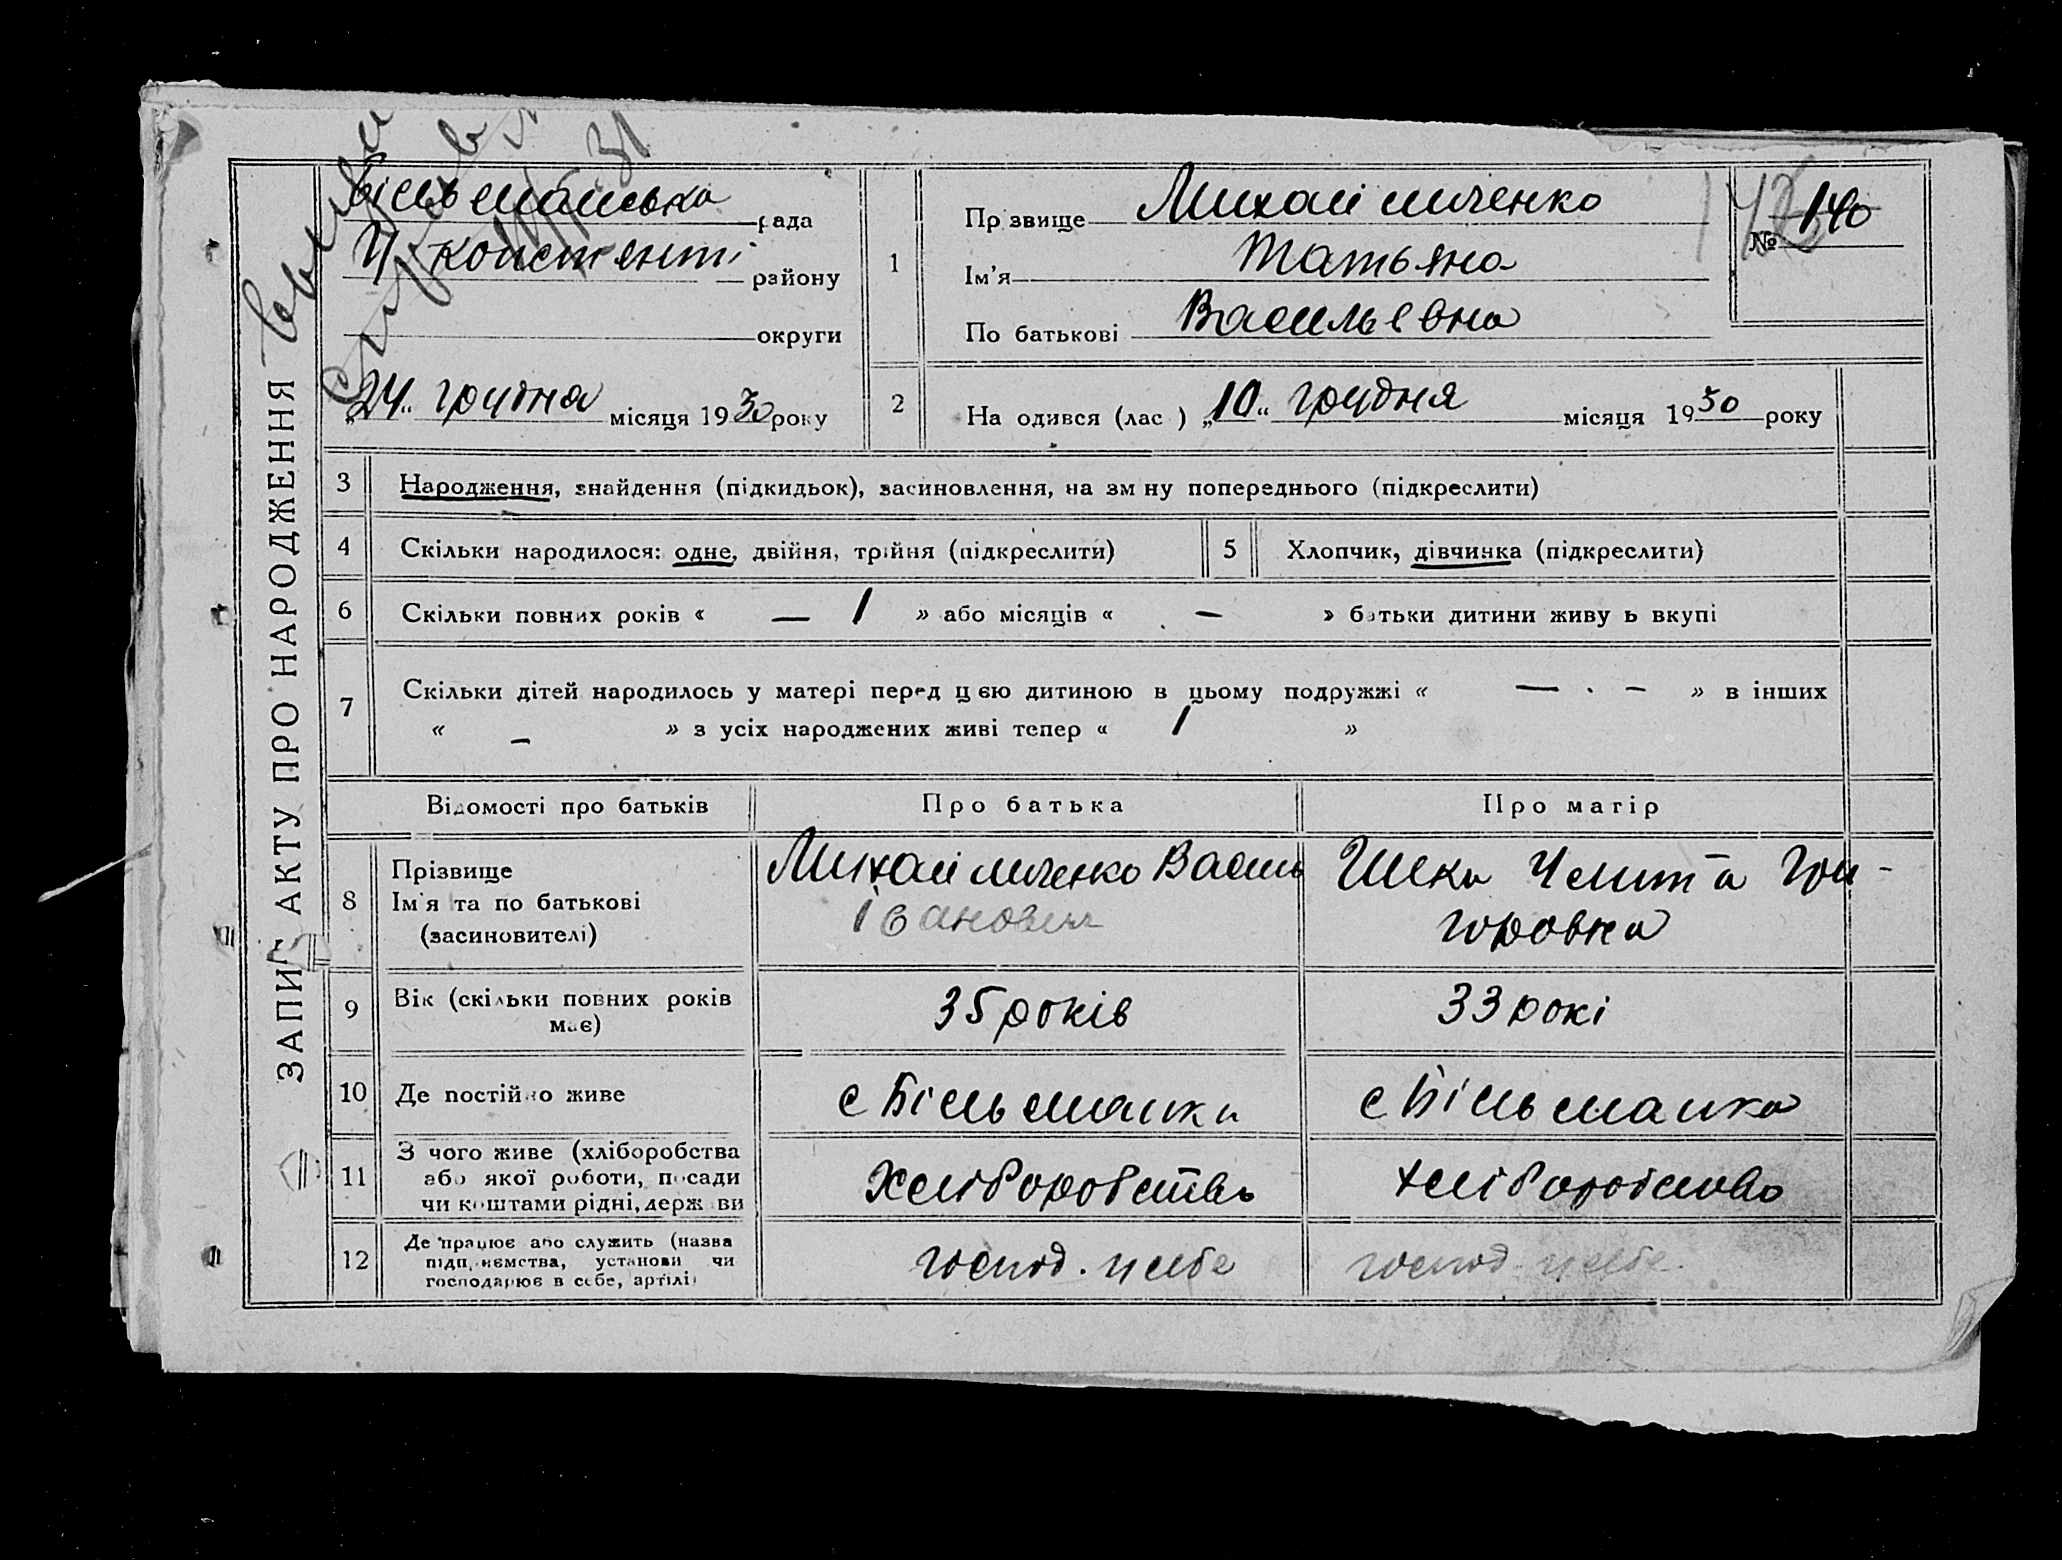 ЗАПИС АКТУ ПРО НАРОДЖЕННЯ
Більманська рада
Ч. констянт. району
округи
„24“ грудня місяця 1930 року
1
Прізвище Михайличенко
Ім'я Татьяна
По батькові Васильевна
№ 140
142
2
На одився (лас ) „10“ грудня місяця 1930 року
3 Народження, знайдення (підкидьок), засиновлення, на зм ну попереднього (підкреслити)
4 Скільки народилося: одне, двійня, трійня (підкреслити)
5 Хлопчик, дівчинка (підкреслити)
6 Скільки повних років « — 1 » або місяців « — » батьки дитини живу ь вкупі
7 Скільки дітей народилось у матері перед цією дитиною в цьому подружжі « — . – » в інших
« – » з усіх народжених живі тепер « 1 »
Відомості про батьків Про батька Про матір
8 Прізвище
Ім'я та по батькові
(засиновителі)
Михайличенко Василь
Іванович
Гри-
горовна
9 Вік (скільки повних років
має)
35 років 33 рокі
10 Де постійно живе с Більманка с Більманка
11 З чого живе (хліборобства
або якої роботи, посади
чи коштами рідні, держ ви
Хліборобство хліборобство
12 Де працює або служить (назва
підприємства, установи чи
господарює в себе, артілі)
господ. у себе господ. у себе.